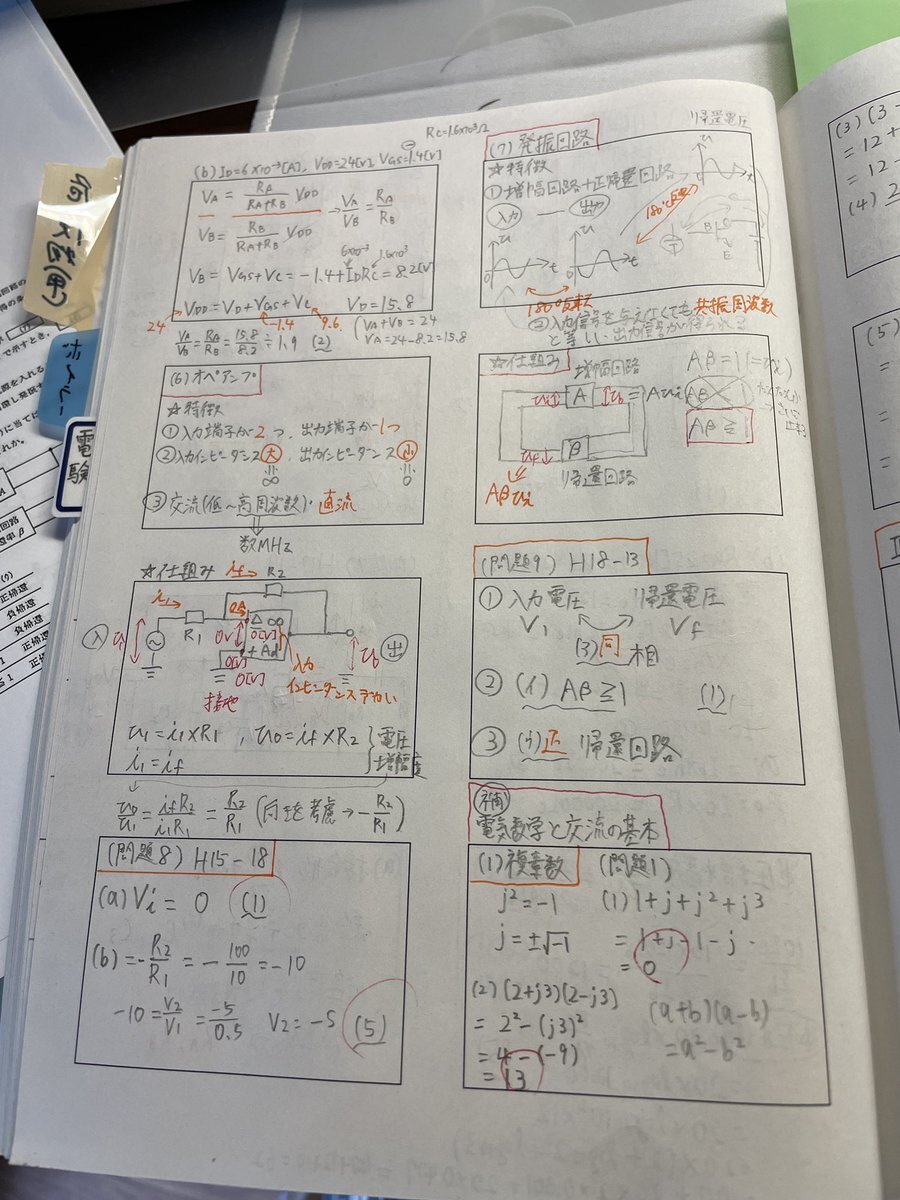 Rc=1.6×10³Ω
(b) ID=6×10⁻³[A], VDD=24[V], VGS=1.4[V]
VA = RA/(RA+RB) VDD → VA/VB = RA/RB
VB = RB/(RA+RB) VDD
6×10⁻³ 1.6×10³
VB = VGS+Vc = -1.4+IDRc = 8.2[V]
VDD = VD+VGS+Vc VD=15.8
24 -1.4 9.6
VA/VB = RA/RB = 15.8/8.2 ≒ 1.9 (2)
VA+VB=24
VA=24-8.2=15.8
(6) オペアンプ
☆特徴
①入力端子が2つ、出力端子が1つ
②入力インピーダンス大、出力インピーダンス小
∞ 0
③交流(低〜高周波数)・直流
数MHz
☆仕組み if→ R2
i1→
R1
入
出
接地
入力
インピーダンスでかい
v1=i1×R1, v0=if×R2
i1=if
電圧
増幅度
v0/v1 = ifR2/i1R1 = R2/R1 (向きを考慮→-R2/R1)
(問題8) H15-18
(a) Vi = 0 (1)
(b) = -R2/R1 = -100/10 = -10
-10 = V2/V1 = -5/0.5 V2=-5 (5)
帰還電圧
(7) 発振回路
☆特徴
①増幅回路+正帰還回路
入力 — 出力
180°反転
180°反転
②入力信号を与えなくても共振周波数
と等しい出力信号が得られる
☆仕組み 増幅回路
A
β
帰還回路
Aβvi
Aβ≧1
(問題9) H18-13
①入力電圧 帰還電圧
V1 Vf
(3)同相
②(イ) Aβ≧1 (1)
③(ウ)正帰還回路
補
電気数学と交流の基本
(1)複素数 (問題1)
j²=-1 (1) 1+j+j²+j³
j=±√-1 = 1+j-1-j
= 0
(2) (2+j3)(2-j3) (a+b)(a-b)
= 2²-(j3)² =a²-b²
= 4-(-9)
= 13
(3) (3-
= 12+
= 12-
(4) 2
(5)
電験
ボイラー
正帰還
負帰還
負帰還
正帰還